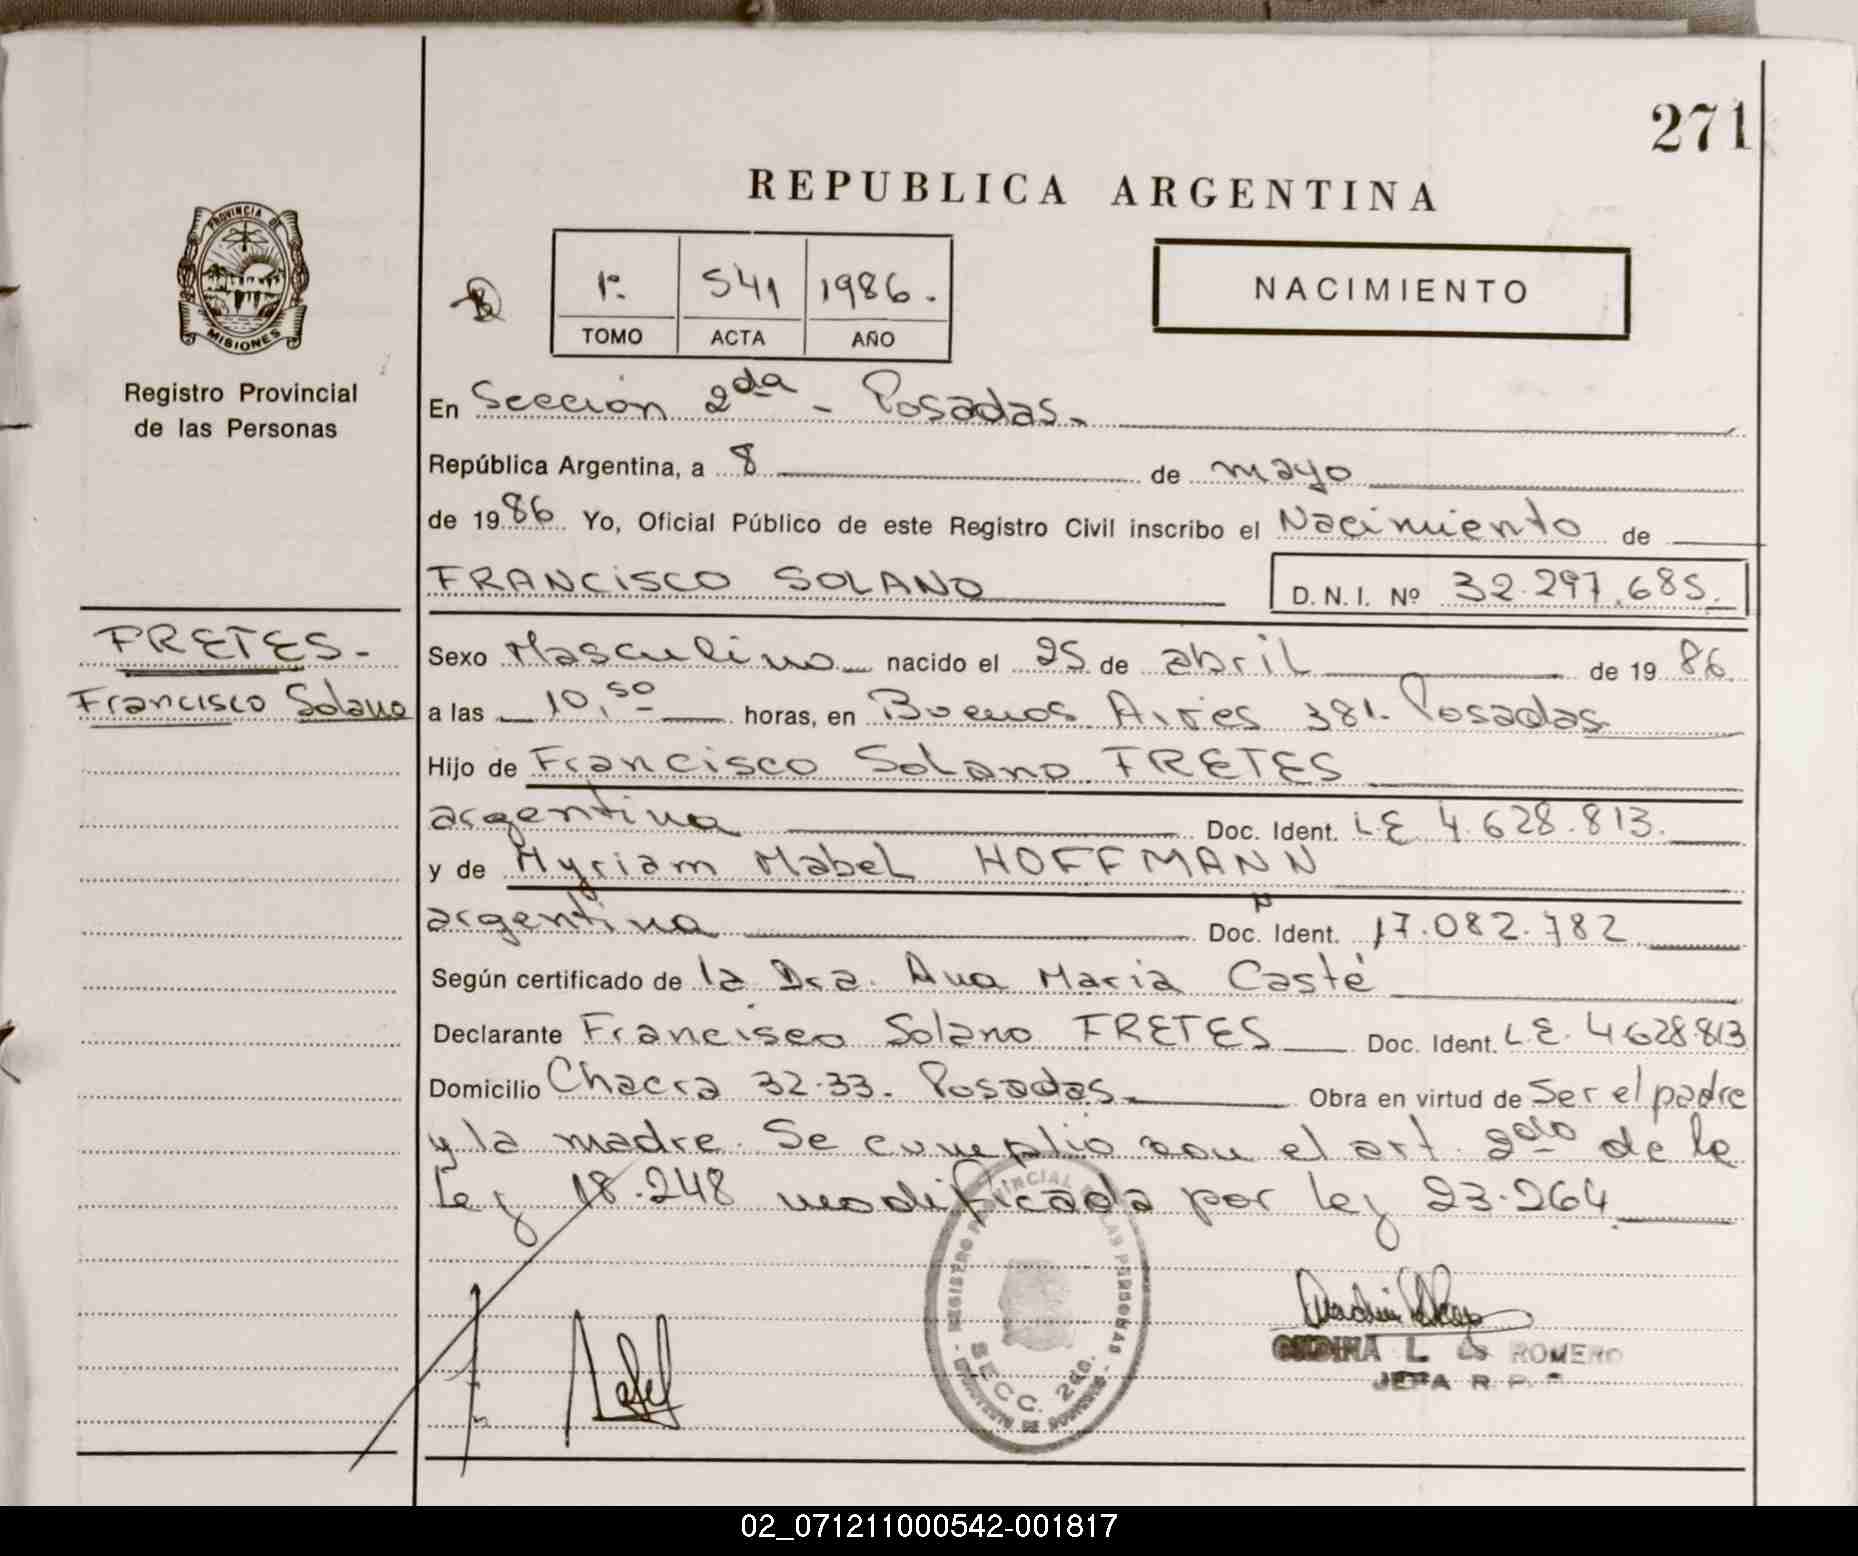 271
REPUBLICA ARGENTINA
PROVINCIA DE
MISIONES
Registro Provincial
de las Personas
1º. 541 1986.
TOMO ACTA AÑO
NACIMIENTO
En Sección 2da - Posadas.
República Argentina, a 8 de mayo
de 1986 Yo, Oficial Público de este Registro Civil inscribo el Nacimiento de
FRANCISCO SOLANO D.N.I. Nº 32.297.685.
FRETES.
Francisco Solano
Sexo Masculino nacido el 25 de abril de 1986
a las 10,50 horas, en Buenos Aires 381. Posadas
Hijo de Francisco Solano FRETES
argentina Doc. Ident. L.E 4.628.813.
y de Myriam Mabel HOFFMANN
argentina Doc. Ident. 17.082.782
Según certificado de la Dra. Ana Maria Casté
Declarante Francisco Solano FRETES Doc. Ident. L.E. 4.628.813
Domicilio Chacra 32-33. Posadas Obra en virtud de ser el padre
y la madre. Se cumplio con el art. 2do de la
Ley 18.248 modificada por ley 23.264
REGISTRO PROVINCIAL DE LAS PERSONAS
SECC. 2da.
L. de ROMERO
JEFA R. P.
02_071211000542-001817